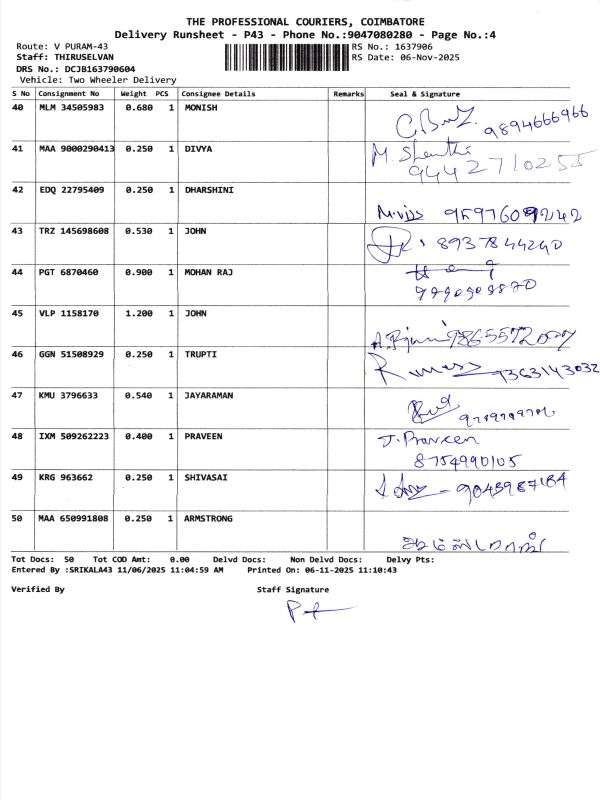 THE PROFESSIONAL COURIERS, COIMBATORE
Delivery Runsheet - P43 - Phone No.:9047080280 - Page No.:4
Route: V PURAM-43 RS No.: 1637906
Staff: THIRUSELVAN RS Date: 06-Nov-2025
DRS No.: DCJB163790604
Vehicle: Two Wheeler Delivery
S No Consignment No Weight PCS Consignee Details Remarks Seal & Signature
40 MLM 34505983 0.680 1 MONISH
9894666966
41 MAA 9000290413 0.250 1 DIVYA M. Shanthi
9442710255
42 EDQ 22795409 0.250 1 DHARSHINI
9597609242
43 TRZ 145698608 0.530 1 JOHN 8937844240
44 PGT 6870460 0.900 1 MOHAN RAJ
45 VLP 1158170 1.200 1 JOHN
46 GGN 51508929 0.250 1 TRUPTI 9363143032
47 KMU 3796633 0.540 1 JAYARAMAN
48 IXM 509262223 0.400 1 PRAVEEN J. Praveen
8754990105
49 KRG 963662 0.250 1 SHIVASAI
50 MAA 650991808 0.250 1 ARMSTRONG
Tot Docs: 50 Tot COD Amt: 0.00 Delvd Docs: Non Delvd Docs: Delvy Pts:
Entered By :SRIKALA43 11/06/2025 11:04:59 AM Printed On: 06-11-2025 11:10:43
Verified By Staff Signature